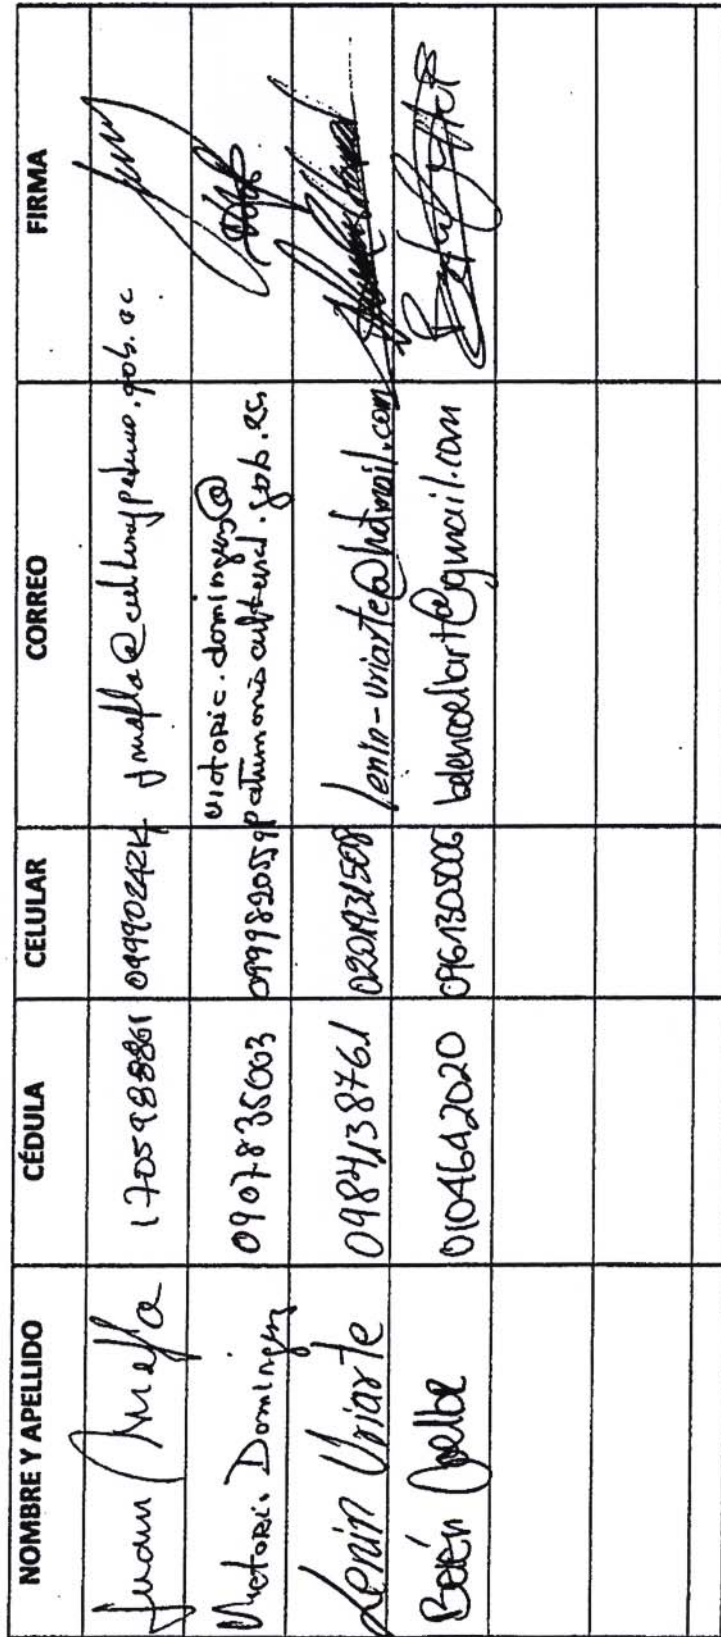 NOMBRE Y APELLIDO CÉDULA CELULAR CORREO FIRMA
Juan Mafla 1705988861 jmafla@culturaypatrimonio.gob.ec
Victoria Dominguez 0907835003 0999820559 victoria.dominguez@
patrimoniocultural.gob.ec
Lenin Uriarte 0984138761 0201931508 lenin-uriarte@hotmail.com
Belén 0104642020 0961305006 @gmail.com